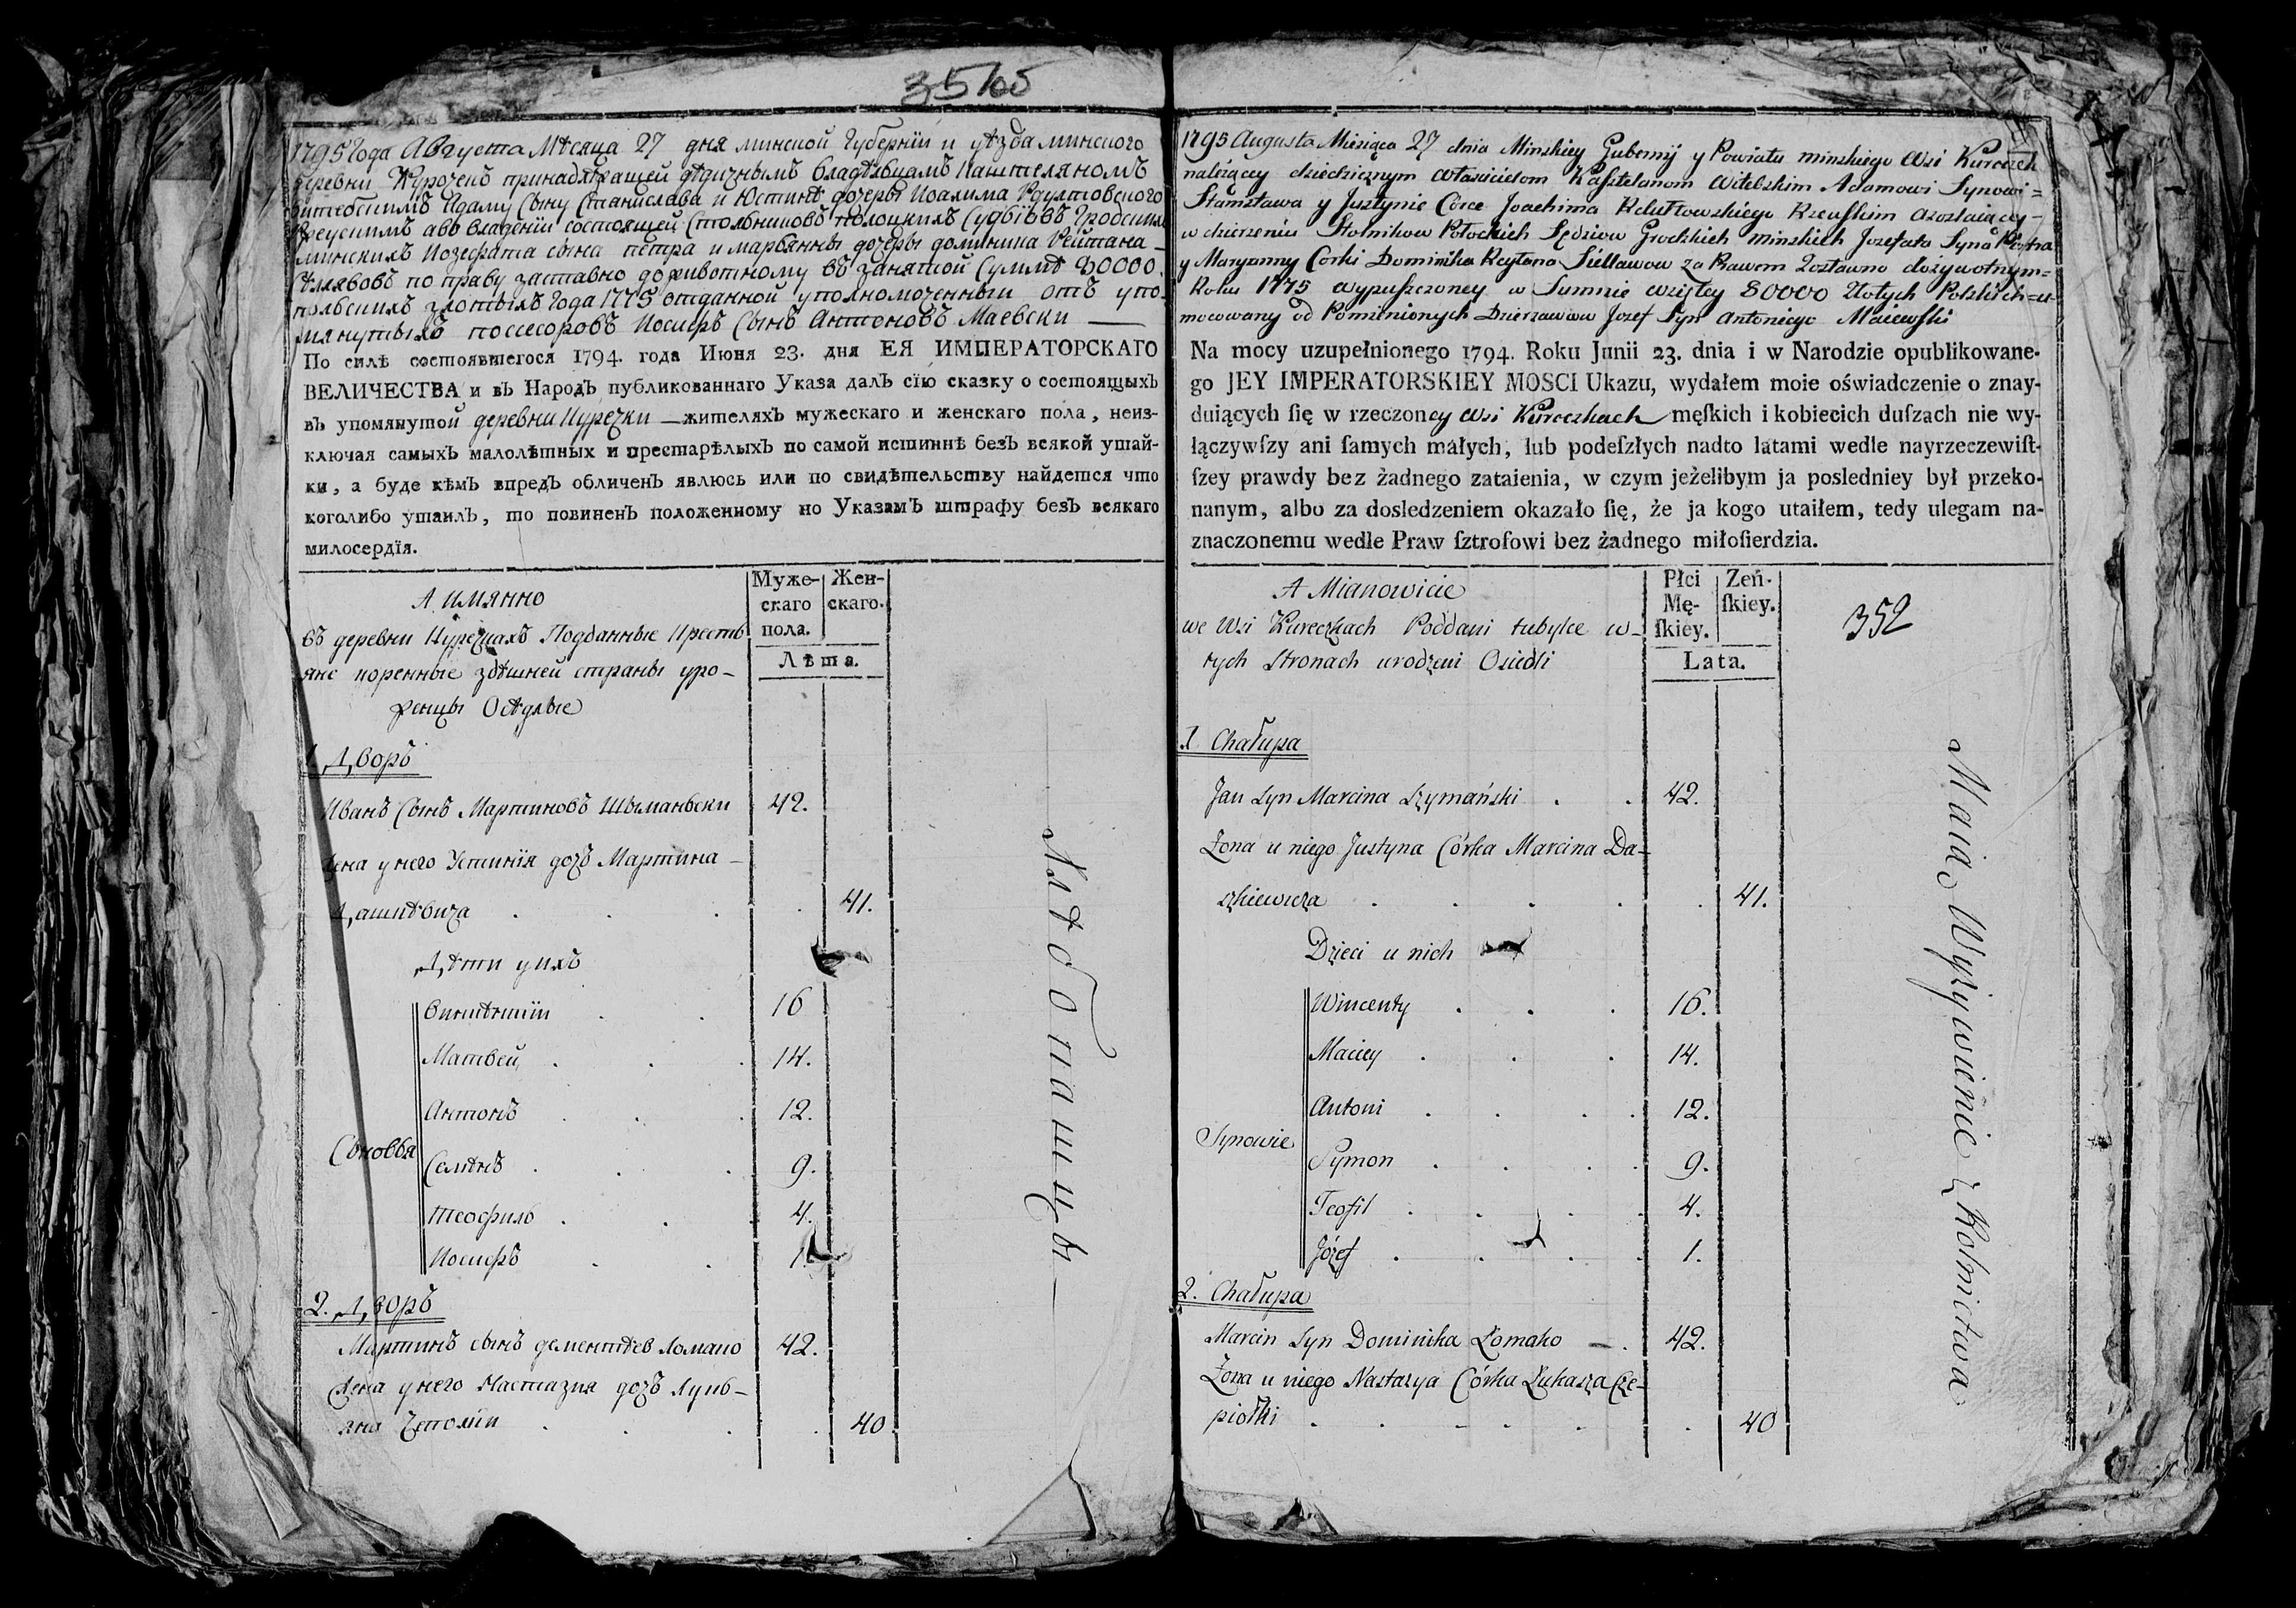 1795 Года Августа Мѣсяца 27 дня минской Губернїи и уѣзда минского
деревни Курочекъ принадлѣжащей дѣдичнымъ владѣльцамъ Каштеляномъ
витебскимъ Адаму Сыну Станислава и Юстинѣ дочеры Иоахима
авъ владенїи состоящей Стольниковъ полоцкихъ Судьїовъ Гродскихъ
минскихъ Иозефата сына петра и марьянны дочеры доминика Рейтана
по праву заставно доживотному въ занятой Суммѣ 80000.
польскихъ злотыхъ Года 1775 отданной уполномоченный отъ упо-
мянутыхъ поссесоровъ Иосифъ Сынъ Антоновъ Маевски —
По силѣ состоявшегося 1794. года Июня 23. дня ЕЯ ИМПЕРАТОРСКАГО
ВЕЛИЧЕСТВА и въ Народъ публикованнаго Указа далъ сїю сказку о состоящыхъ
въ упомянутой деревни Куречки — жителяхъ мужескаго и женскаго пола, неиз-
ключая самыхъ малолѣтныхъ и престарѣлыхъ по самой истиннѣ безъ всякой утай-
ки, а буде кѣмъ впредъ обличенъ явлюсь или по свидѣтельству найдется что
коголибо утаилъ, то повиненъ положенному по Указамъ штрафу безъ всякаго
милосердїя.
А имянно
Муже-
скаго
пола.
Жен-
скаго.
Лѣта.
въ деревни Куречкахъ Подданные Кресть
яне коренные здѣшней страны уро-
женцы Осѣдлые
1. Дворъ
Иванъ Сынъ Мартиновъ Шыманьски 42.
Жена у него Устинїя дочь Мартина —
Дашкѣвича . . . 41.
Дѣти у ихъ
Сыновья
Викѣнтїи . . 16
Матвей . . 14.
Антонъ . . 12.
Семѣнъ . . 9.
Теофиль . . 4.
Иосифъ . . 1.
2. Дворъ
Мартинъ сынъ дементѣев Ломако 42.
Жена у него Настазия дочь Лукь-
яна . . . 40
3560
1795 Augusta Miesiąca 27 dnia Minskiey Gubernij y Powiatu minskiego Wsi Kureczek
należącey dziedzicznym własicielom Kasztelanom Witebskim Adamowi Synowi=
Stanisława y Justynie Córce Joachima Rdułtowskiego Rzeuskim azostaiącey-
w dzierżeniu Stolnikow Połockich Sędziow Grodzkich minskich Jozefata Syna Piotra
y Maryanny Corki Dominika Reytana Siellawow za Prawem Zostawno dożywotnym=
Roku 1775 wypuszczoney w Summie wziętey 80000 Złotych Polskich=u-
mocowany od Pomienionych Dzierżawcow Jozef Syn Antoniego Maiewski
Na mocy uzupełnionego 1794. Roku Junii 23. dnia i w Narodzie opublikowane-
go JEY IMPERATORSKIEY MOSCI Ukazu, wydałem moie oświadczenie o znay-
duiących ſię w rzeczoney Wsi Kureczkach męſkich i kobiecich duſzach nie wy-
łączywſzy ani ſamych małych, lub podeſzłych nadto latami wedle nayrzeczewiſt-
ſzey prawdy bez żadnego zataienia, w czym jeżelibym ja posledniey był przeko-
nanym, albo za dosledzeniem okazało ſię, że ja kogo utaiłem, tedy ulegam na-
znaczonemu wedle Praw ſztrofowi bez żadnego miłoſierdzia.
A Mianowicie
Płci
Mę-
ſkiey.
Zeń-
ſkiey.
Lata.
we Wsi Kureczkach Poddani tubylce w-
tych Stronach urodzeni Osiedli
1 Chałupa
Jan Syn Marcina Szymański . . 42.
Żona u niego Justyna Córka Marcina Da-
szkiewicza . . . . . 41.
Dzieci u nich
Synowie
Wincenty . . . 16.
Maciey . . . 14.
Antoni . . . . 12.
Symon . . . . 9.
Teofil . . . . 4.
Józef . . . . 1.
2. Chałupa
Marcin Syn Dominika Łomako — . 42.
Żona u niego Nastazya Córka Łukasza Cze-
piołki . . . . . . 40
352
Хлѣбопашцы —
Maią Wyżywienie z Rolnictwa